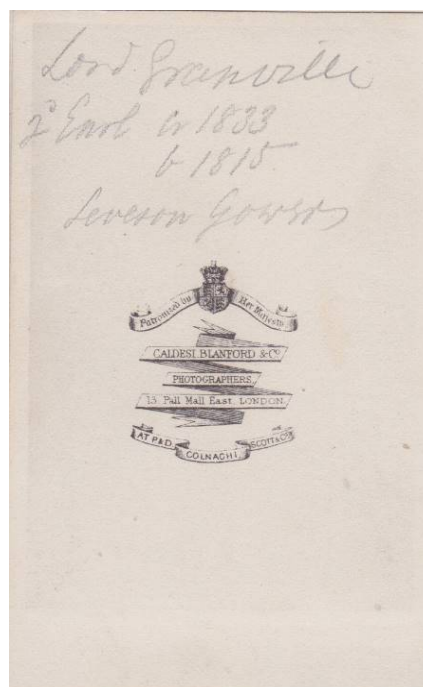 Lord Granville
2d Earl cr 1833
b 1815
Leveson Gowers
Patronised by Her Majesty
CALDESI, BLANFORD & Co
PHOTOGRAPHERS,
13, Pall Mall East, LONDON.
AT P&D. COLNAGHI, SCOTT & Co